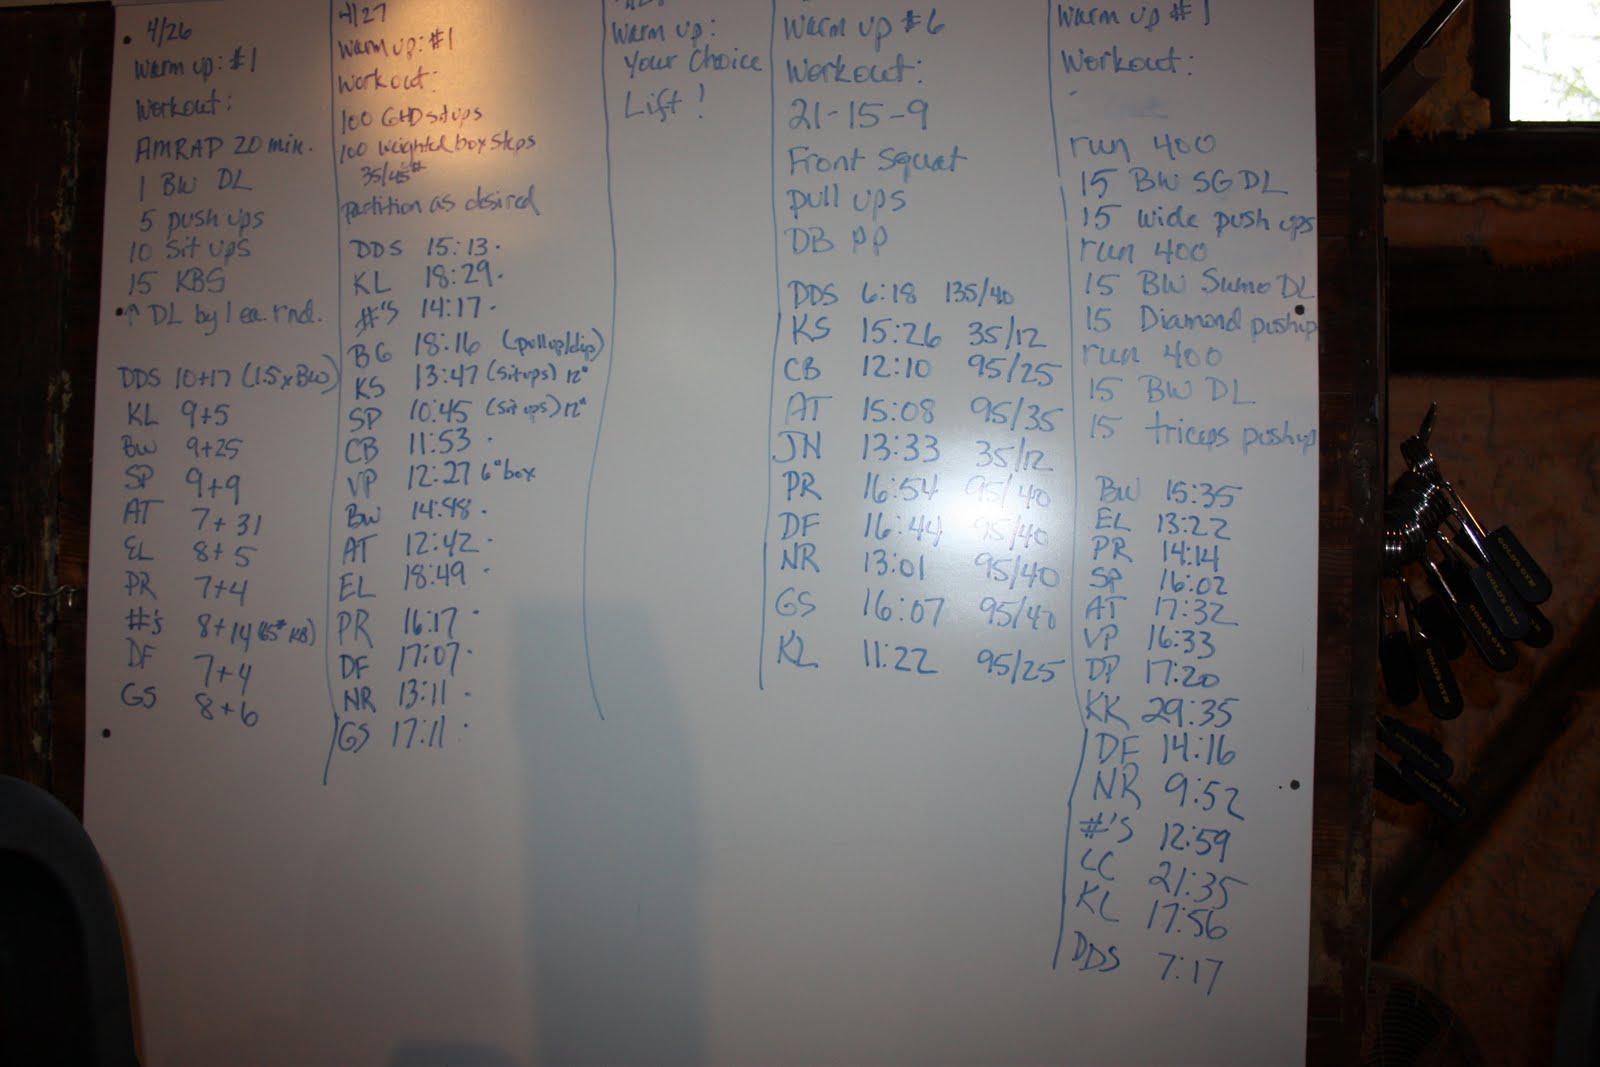 4/26
Warm up: #1
Workout:
AMRAP 20 min.
1 BW DL
5 push ups
10 Sit ups
15 KBS
↑ DL by 1 ea. rnd.
DDS 10+17 (1.5xBW)
KL 9+5
BW 9+25
SP 9+9
AT 7+31
EL 8+5
PR 7+4
#'s 8+14 (65# KB)
DF 7+4
GS 8+6
4/27
Warm up: #1
Workout:
100 GHD situps
100 weighted box steps
35/45#
partition as desired
DDS 15:13
KL 18:29
#'s 14:17
BG 18:16 (pullup/dip)
KS 13:47 (situps) 12"
SP 10:45 (sit ups) 12"
CB 11:53
VP 12:27 6" box
BW 14:48
AT 12:42
EL 18:49
PR 16:17
DF 17:07
NR 13:11
GS 17:11
Warm up:
Your Choice
Lift!
Warm up #6
Workout:
21-15-9
Front Squat
Pull ups
DB PP
DDS 6:18 135/40
KS 15:26 35/12
CB 12:10 95/25
AT 15:08 95/35
JN 13:33 35/12
PR 16:54 95/40
DF 16:44 95/40
NR 13:01 95/40
GS 16:07 95/40
KL 11:22 95/25
Warm up #1
Workout:
run 400
15 BW SG DL
15 wide push ups
run 400
15 BW Sumo DL
15 Diamond pushup
run 400
15 BW DL
15 triceps pushup
BW 15:35
EL 13:22
PR 14:14
SP 16:02
AT 17:32
VP 16:33
DP 17:20
KK 29:35
DF 14:16
NR 9:52
#'s 12:59
LC 21:35
KL 17:56
DDS 7:17
GOLD'S GYM
GOLD'S GYM
GOLD'S GYM
GOLD'S GYM